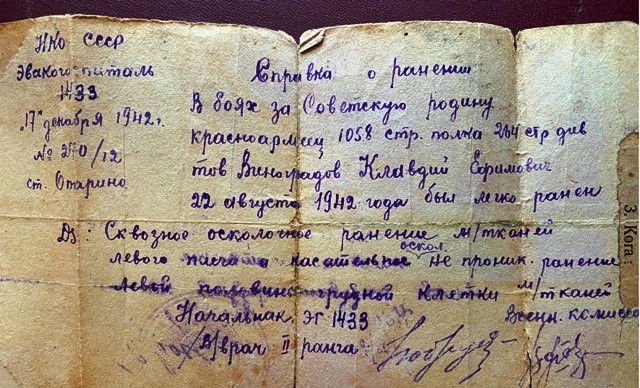 НКО СССР
Эвакогоспиталь
1433
"17" декабря 1942 г.
№ 270/12
ст. Опарино
Справка о ранении
В боях за Советскую родину
красноармеец 1058 стр. полка 284 стр див
тов Виноградов Клавдий Ефимович
22 августа 1942 года был легко ранен
Ds: Сквозное осколочное ранение м/тканей
левого плеча и касательное оскол. не проник. ранение
левой половины грудной клетки м/тканей
Начальник ЭГ 1433 Военн. комисса
/В/врач II ранга
3. Кога